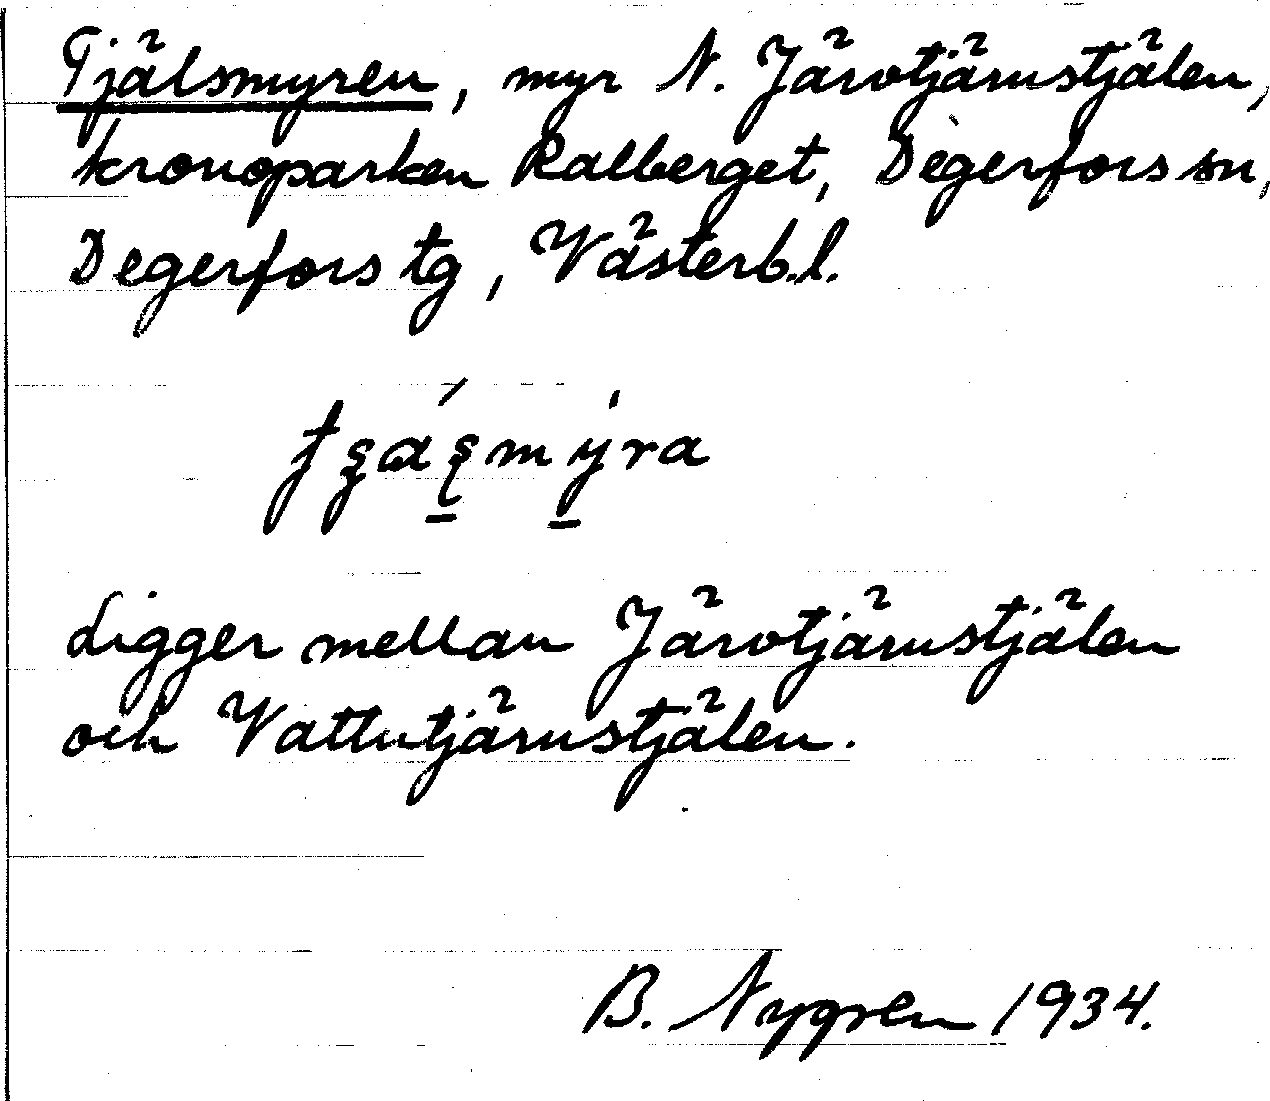 Tjälsmyren, myr N. Järvtjärnstjälen,
kronoparken Kalberget, Degerfors sn,
Degerfors tg, Västerb.l.
Ligger mellan Järvtjärnstjälen
och Vattutjärnstjälen.
B. Nygren 1934.